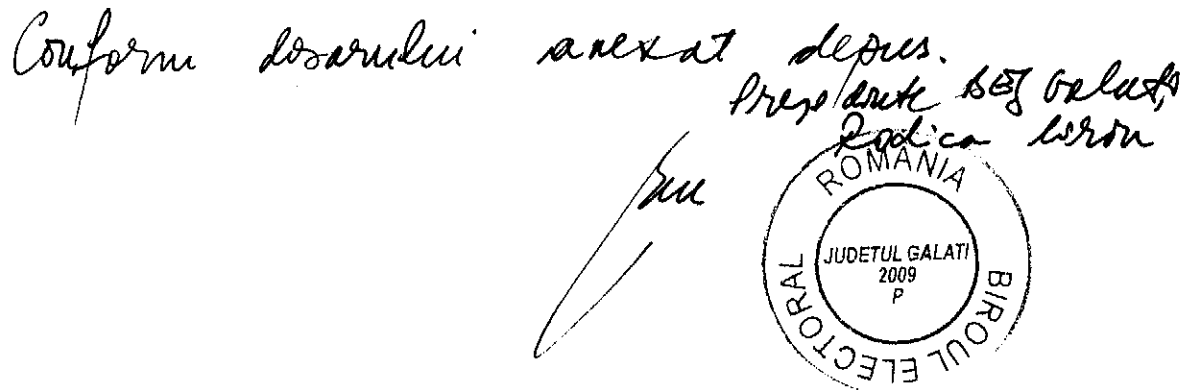 Conform dosarului anexat depus.
Președinte BEJ Galați,
Rodica
ROMÂNIA
BIROUL ELECTORAL
JUDETUL GALATI
2009
P